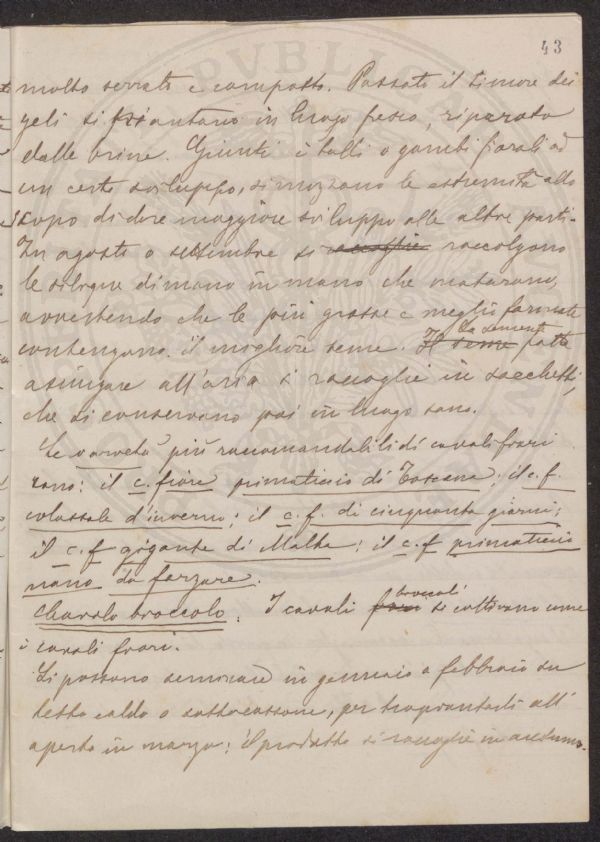 43
molto serrato e compatto. Passato il timore dei
geli si trapiantano in luogo fresco, riparato
dalle brine. Giunti i talli o gambi fiorali ad
un certo sviluppo, si mozzano le estremità allo
scopo di dare maggiore sviluppo alle altre parti.
In agosto o settembre si raccoglie raccolgono
le silique di mano in mano che maturano,
avvertendo che le più grosse e meglio formate
contengono il migliore seme. Il seme La semente fatta
asciugare all'aria si raccoglie in sacchetti,
che si conservano poi in luogo sano.
Le varietà più raccomandabili di cavoli fiori
sono: il c. fiore primaticcio di Toscana; il c. f.
colossale d'inverno; il c. f. di cinquanta giorni;
il c. f gigante di Malta; il c. f primaticcio
nano da forzare.
Cavolo broccolo. I cavoli fiori broccoli si coltivano come
i cavoli fiori.
Si possono seminare in gennaio o febbraio su
letto caldo o sotto cassone, per trapiantarli all'
aperto in marzo; il prodotto si raccoglie in autunno.